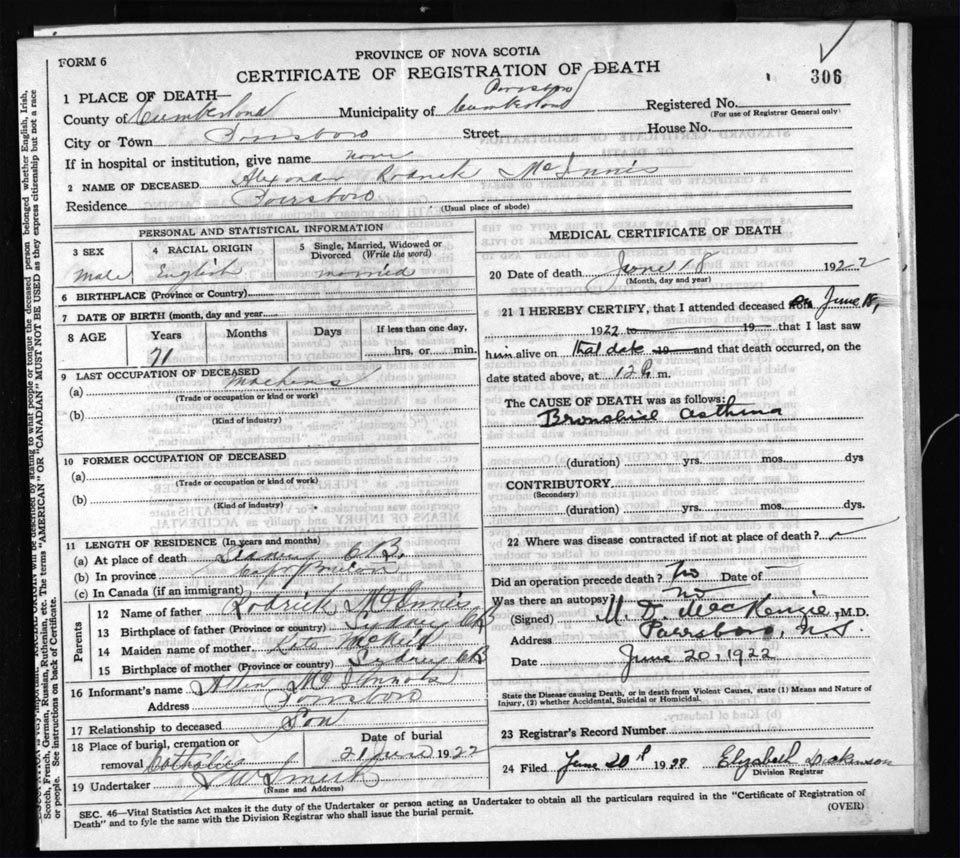 FORM 6
PROVINCE OF NOVA SCOTIA
CERTIFICATE OF REGISTRATION OF DEATH
306
1 PLACE OF DEATH—
County of Cumberland Municipality of Parrsboro Cumberland Registered No.
(For use of Registrar General only)
City or Town Parrsboro Street House No.
If in hospital or institution, give name none
2 NAME OF DECEASED Alexander Rodrick McInnis
Residence Parrsboro
(Usual place of abode)
PERSONAL AND STATISTICAL INFORMATION
3 SEX 4 RACIAL ORIGIN 5 Single, Married, Widowed or Divorced (Write the word)
Male English married
6 BIRTHPLACE (Province or Country)
7 DATE OF BIRTH (month, day and year
8 AGE Years Months Days If less than one day,
71 hrs, or min.
9 LAST OCCUPATION OF DECEASED
(a)
(Trade or occupation or kind or work)
(b)
(Kind of industry)
10 FORMER OCCUPATION OF DECEASED
(a)
(Trade or occupation or kind or work)
(b)
(Kind of industry)
11 LENGTH OF RESIDENCE (In years and months)
(a) At place of death C.B.
(b) In province Cape Breton
(c) In Canada (if an immigrant)
Parents
12 Name of father Rodrick McInnis
13 Birthplace of father (Province or country) Sydney CB
14 Maiden name of mother Kate
15 Birthplace of mother (Province or country) Sydney CB
16 Informant's name Allen
Address Parrsboro
17 Relationship to deceased Son
18 Place of burial, cremation or removal Catholic
Date of burial
21 June 1922
19 Undertaker Smith
(Name and Address)
MEDICAL CERTIFICATE OF DEATH
20 Date of death June 18 1922
(Month, day and year)
21 I HEREBY CERTIFY, that I attended deceased on June 18,
1922 to 19 that I last saw
him alive on that date 19 and that death occurred, on the
date stated above, at 12 m.
The CAUSE OF DEATH was as follows:
Bronchial asthma
(duration) yrs. mos. dys
CONTRIBUTORY
(Secondary)
(duration) yrs. mos. dys.
22 Where was disease contracted if not at place of death?
Did an operation precede death? no Date of —
Was there an autopsy no
(Signed) MacKenzie, M.D.
Address Parrsboro, N.S.
Date June 20, 1922
State the Disease causing Death, or in death from Violent Causes, state (1) Means and Nature of
Injury, (2) whether Accidental, Suicidal or Homicidal.
23 Registrar's Record Number
24 Filed June 20 19 Elizabeth Dickinson
Division Registrar
SEC. 46—Vital Statistics Act makes it the duty of the Undertaker or person acting as Undertaker to obtain all the particulars required in the "Certificate of Registration of
Death" and to fyle the same with the Division Registrar who shall issue the burial permit.
(OVER)
Scotch, French, German, Russian, Ruthenian, etc. The terms "AMERICAN" OR "CANADIAN" MUST NOT BE USED as they express citizenship but not a race
or people. See instructions on back of Certificate.